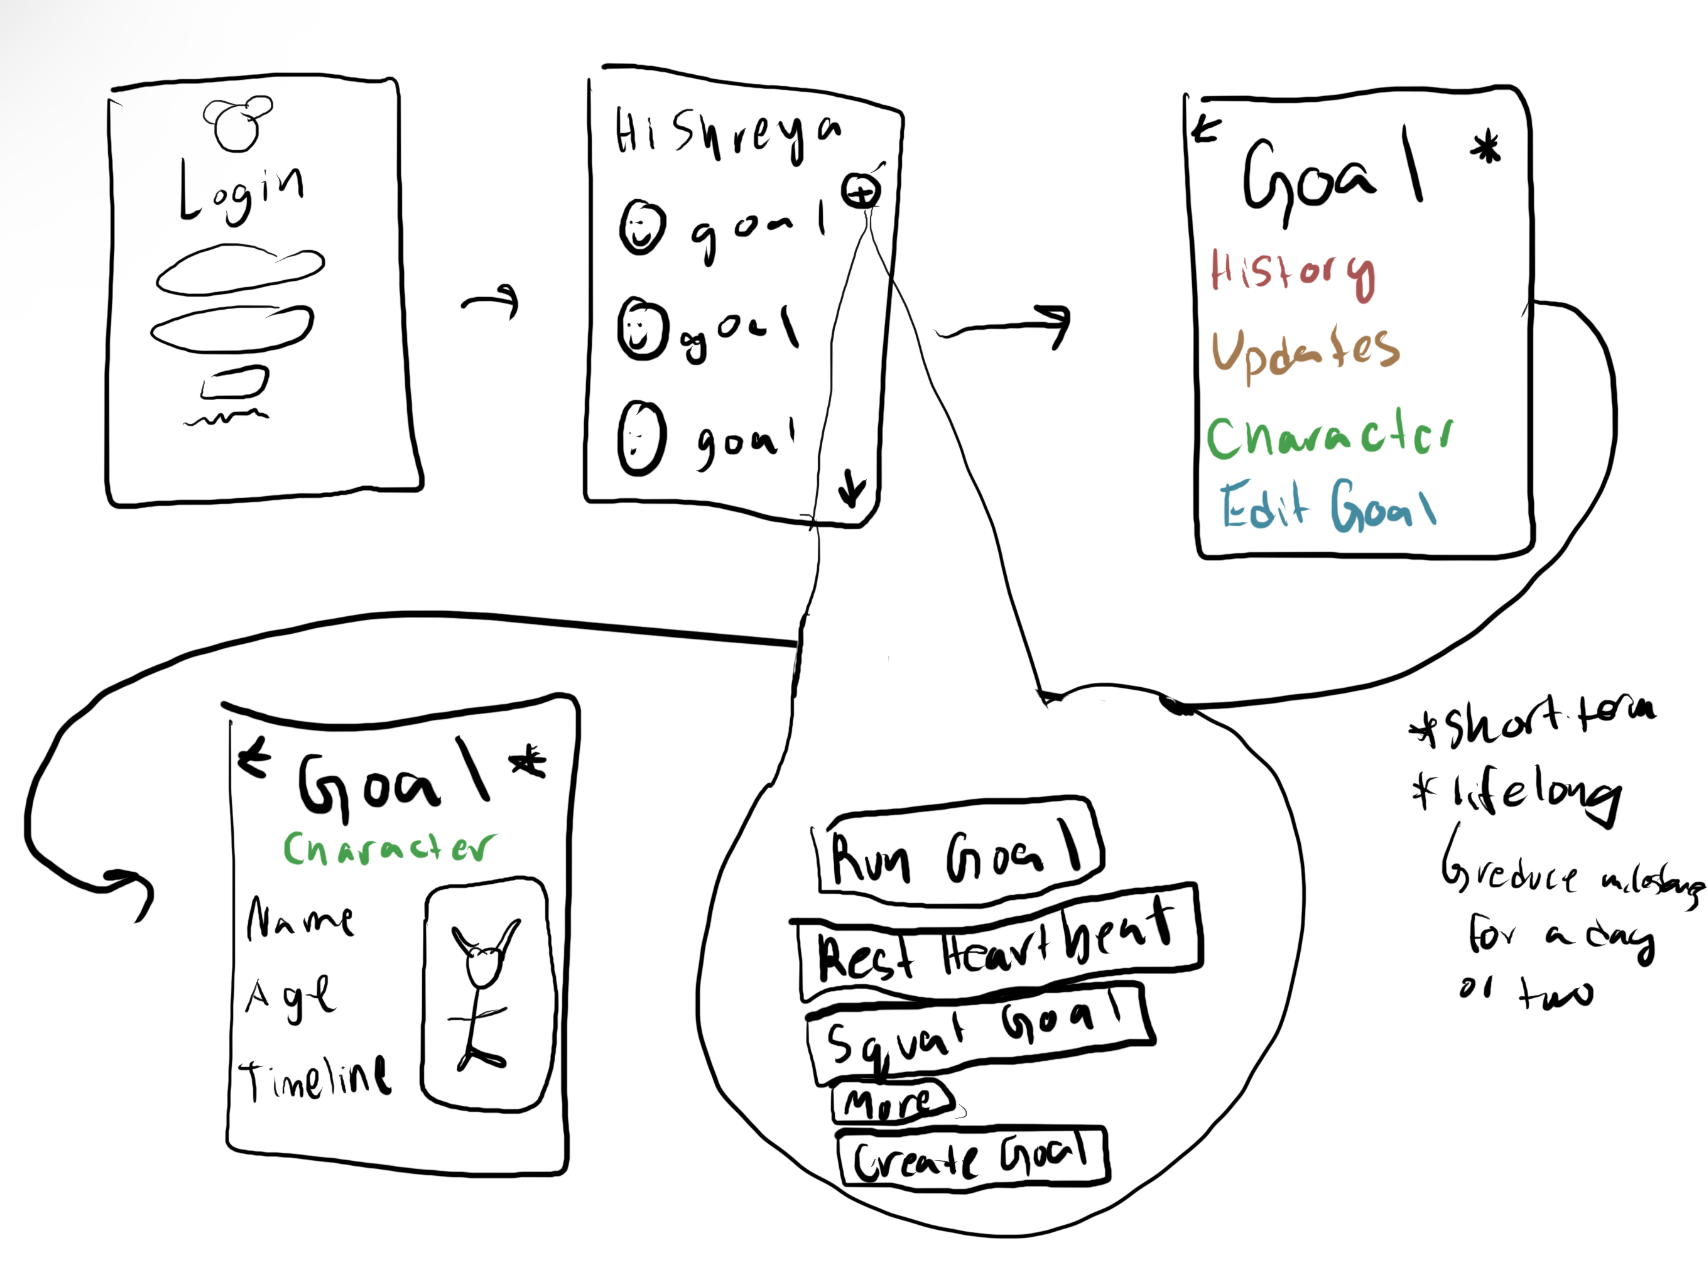 Login
Hi Shreya
goal
goal
goal
Goal *
History
Updates
Character
Edit Goal
Goal *
Character
Name
Age
Timeline
Run Goal
Rest Heartbeat
Squat Goal
More
Create Goal
* short term
* lifelong
reduce
for a day
or two